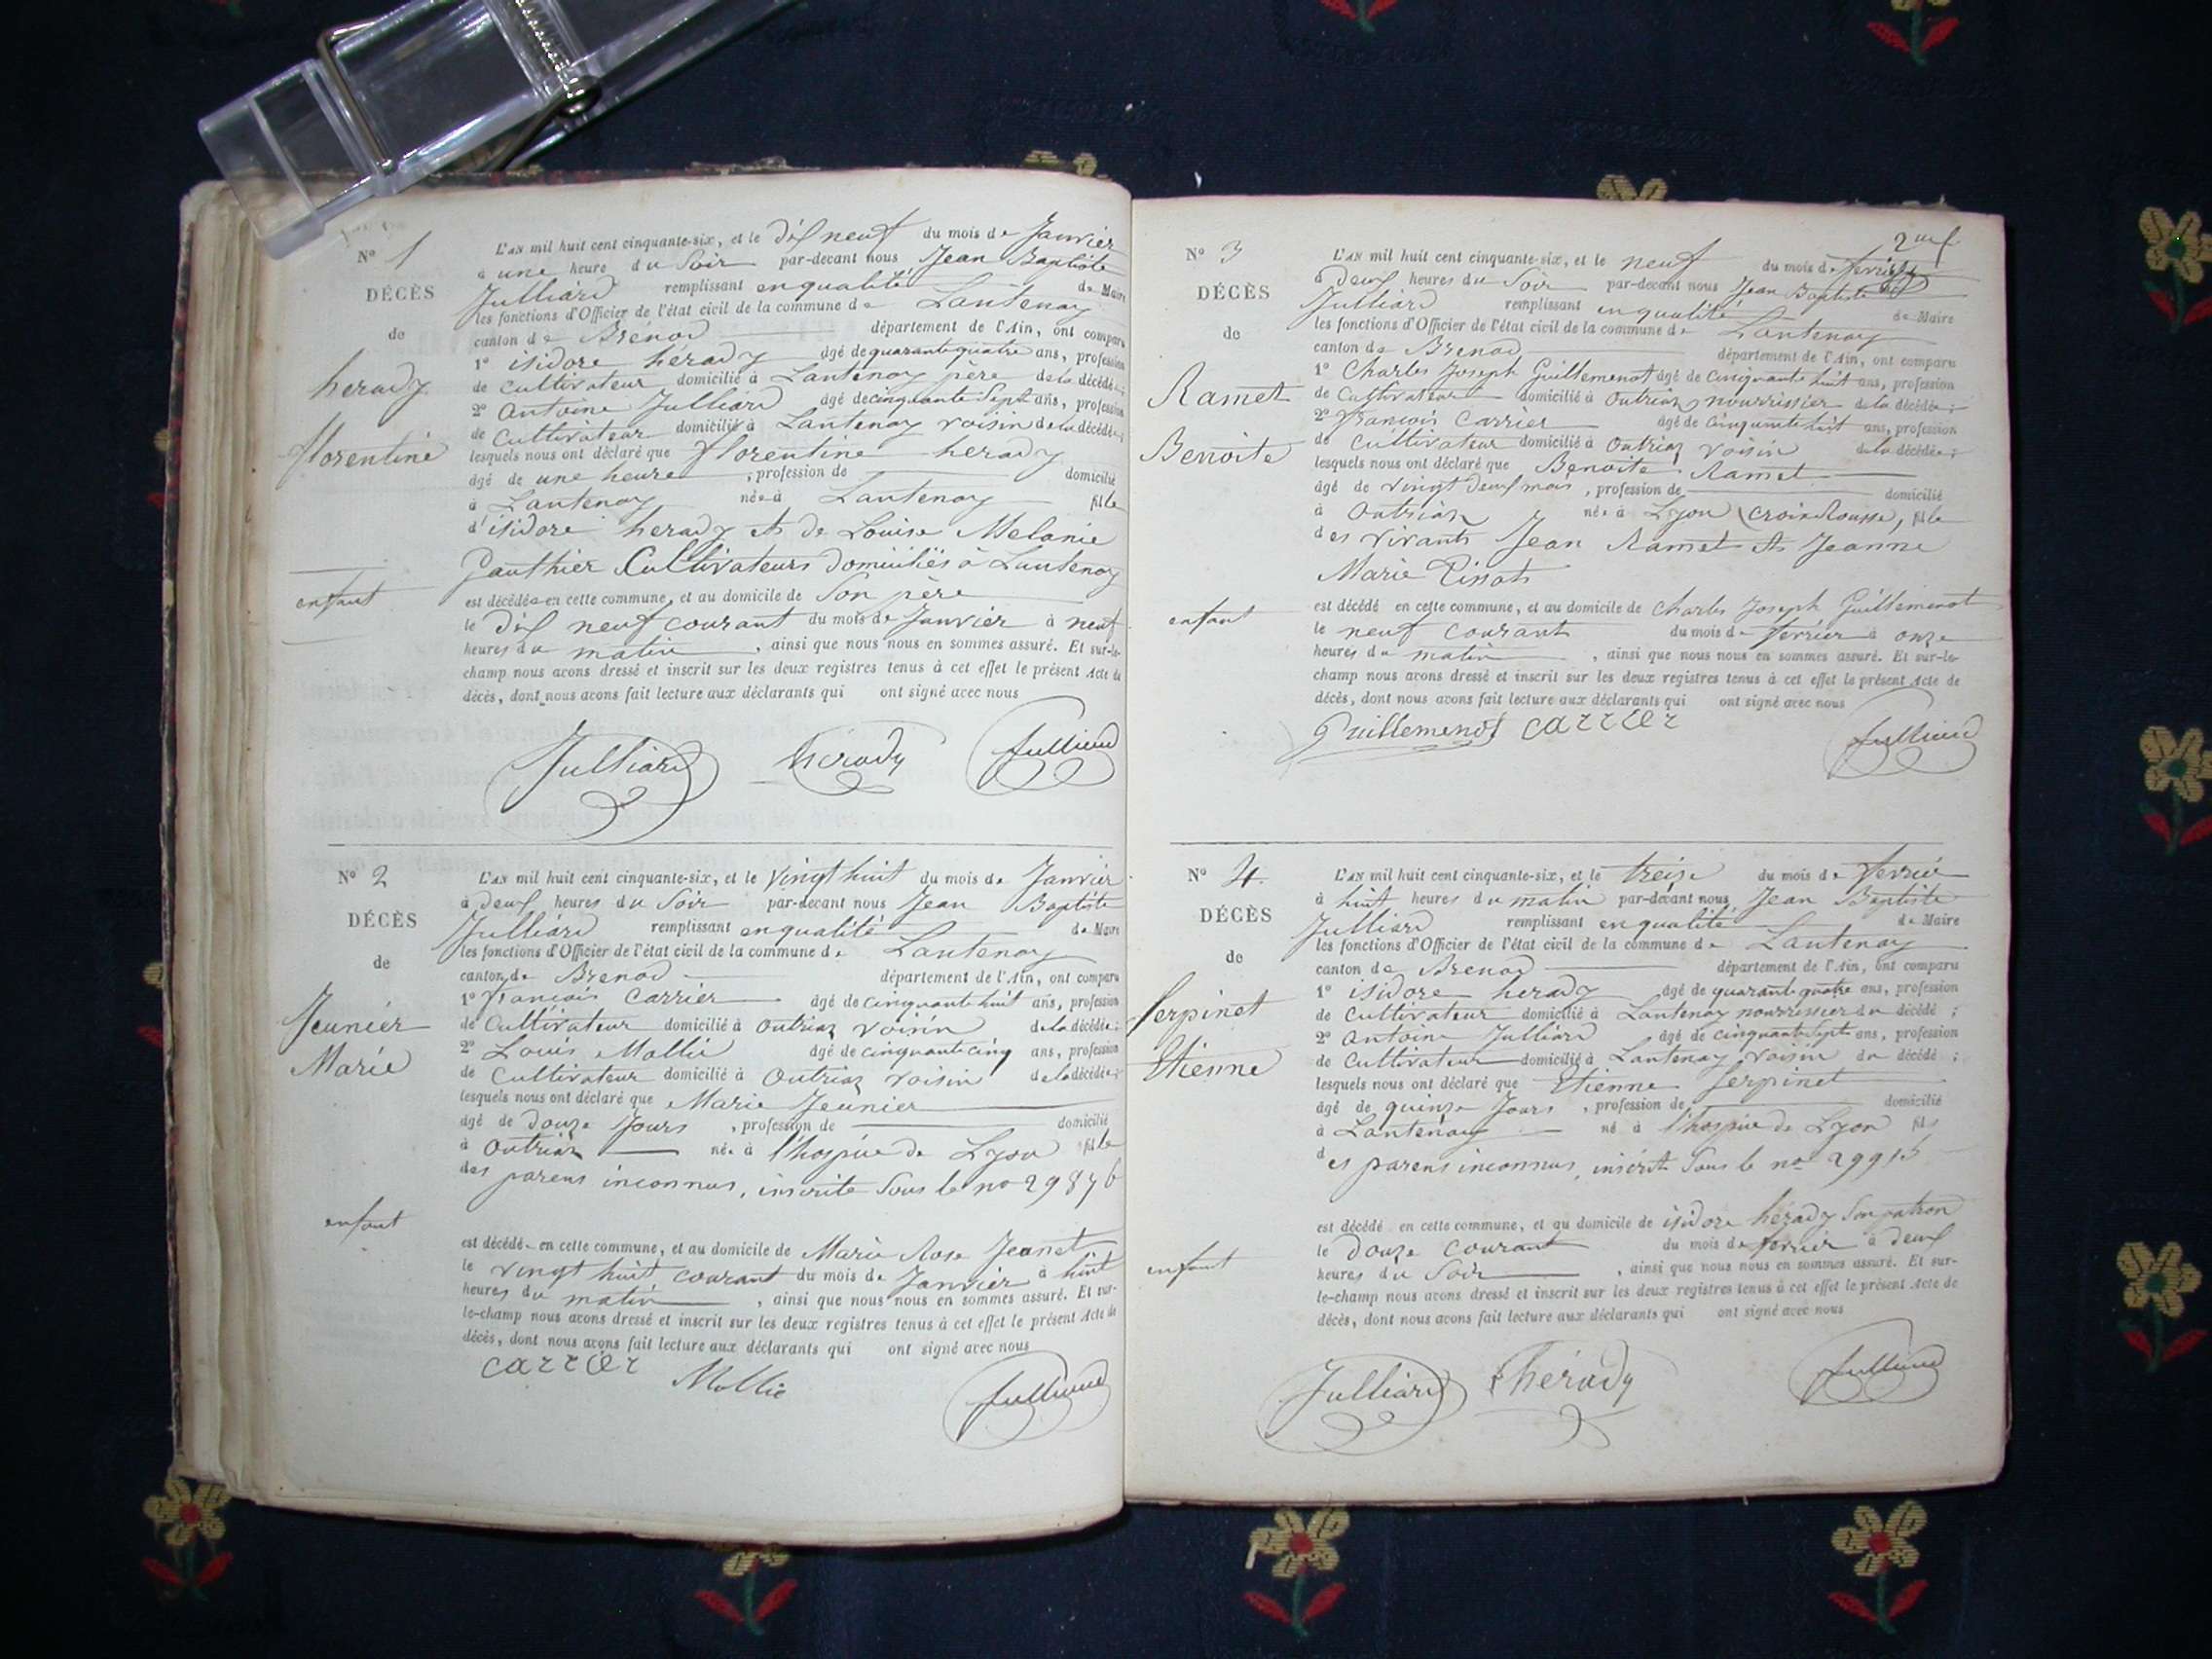 N° 1
DÉCÈS
de
herady
florentine
enfant
L'AN mil huit cent cinquante-six, et le dix neuf du mois de Janvier
à une heure du Soir par-devant nous Jean Baptiste
Julliard remplissant en qualité de Maire
les fonctions d'Officier de l'état civil de la commune de Lantenay
canton de Brénod département de l'Ain, ont comparu
1° isidore hérady âgé de quarante quatre ans, profession
de Cultivateur domicilié à Lantenay père de la décédée;
2° Antoine Julliard âgé de cinquante Sept ans, profession
de Cultivateur domicilié à Lantenay voisin de la décédée;
lesquels nous ont déclaré que florentine herady
âgé de une heure, profession de domicilié
à Lantenay née à Lantenay fille
d'isidore herady et de Louise Melanie
Gauthier Cultivateurs domiciliés à Lantenay
est décédée en cette commune, et au domicile de Son père
le dix neuf courant du mois de Janvier à neuf
heures du matin, ainsi que nous nous en sommes assuré. Et sur-le-
champ nous avons dressé et inscrit sur les deux registres tenus à cet effet le présent Acte de
décès, dont nous avons fait lecture aux déclarants qui ont signé avec nous
Julliard herady Julliard
N° 2
DÉCÈS
de
Jeunier
Marie
enfant
L'AN mil huit cent cinquante-six, et le vingt huit du mois de Janvier
à deux heures du Soir par-devant nous Jean Baptiste
Julliard remplissant en qualité de Maire
les fonctions d'Officier de l'état civil de la commune de Lantenay
canton de Brenod département de l'Ain, ont comparu
1° françois Carrier âgé de cinquante huit ans, profession
de Cultivateur domicilié à Outriaz voisin de la décédée;
2° Louis Mollie âgé de cinquante cinq ans, profession
de Cultivateur domicilié à Outriaz voisin de la décédée;
lesquels nous ont déclaré que Marie Jeunier
âgé de douze Jours, profession de domicilié
à Outriaz née à l'hospice de Lyon fille
des parens inconnus, inscrite Sous le no 29876
est décédée en cette commune, et au domicile de Marie Rose Jeunet
le vingt huit courant du mois de Janvier à huit
heures du matin, ainsi que nous nous en sommes assuré. Et sur-
le-champ nous avons dressé et inscrit sur les deux registres tenus à cet effet le présent Acte de
décès, dont nous avons fait lecture aux déclarants qui ont signé avec nous
carrier Mollie Julliard
N° 3
DÉCÈS
de
Ramet
Benoite
enfant
L'AN mil huit cent cinquante-six, et le neuf du mois de fevrier
à deux heures du Soir par-devant nous Jean Baptiste
Julliard remplissant en qualité de Maire
les fonctions d'Officier de l'état civil de la commune de Lantenay
canton de Brenod département de l'Ain, ont comparu
1° Charles Joseph Guillemenot âgé de cinquante huit ans, profession
de Cultivateur domicilié à Outriaz nourrissier de la décédée;
2° françois Carrier âgé de cinquante huit ans, profession
de Cultivateur domicilié à Outriaz voisin de la décédée;
lesquels nous ont déclaré que Benoite Ramet
âgé de vingt deux mois, profession de domicilié
à Outriaz née à Lyon (croix Rousse, fille
des vivants Jean Ramet et Jeanne
Marie
est décédé en cette commune, et au domicile de Charles Joseph Guillemenot
le neuf courant du mois de fevrier à onze
heures du matin, ainsi que nous nous en sommes assuré. Et sur-le-
champ nous avons dressé et inscrit sur les deux registres tenus à cet effet le présent Acte de
décès, dont nous avons fait lecture aux déclarants qui ont signé avec nous
Guillemenot carrier Julliard
N° 4.
DÉCÈS
de
Serpinet
Etienne
enfant
L'AN mil huit cent cinquante-six, et le treise du mois de fevrier
à huit heures du matin par-devant nous Jean Baptiste
Julliard remplissant en qualité de Maire
les fonctions d'Officier de l'état civil de la commune de Lantenay
canton de Brenod département de l'Ain, ont comparu
1° isidore herady âgé de quarante quatre ans, profession
de Cultivateur domicilié à Lantenay nourrissier du décédé;
2° Antoine Julliard âgé de cinquante Sept ans, profession
de Cultivateur domicilié à Lantenay voisin du décédé;
lesquels nous ont déclaré que Etienne Serpinet
âgé de quinze Jours, profession de domicilié
à Lantenay né à l'hospice de Lyon fils
des parens inconnus, inscrit Sous le no 29915
est décédé en cette commune, et au domicile de isidore hérady Son patron
le douze courant du mois de fevrier à deux
heures du Soir, ainsi que nous nous en sommes assuré. Et sur-
le-champ nous avons dressé et inscrit sur les deux registres tenus à cet effet le présent Acte de
décès, dont nous avons fait lecture aux déclarants qui ont signé avec nous
Julliard hérady Julliard